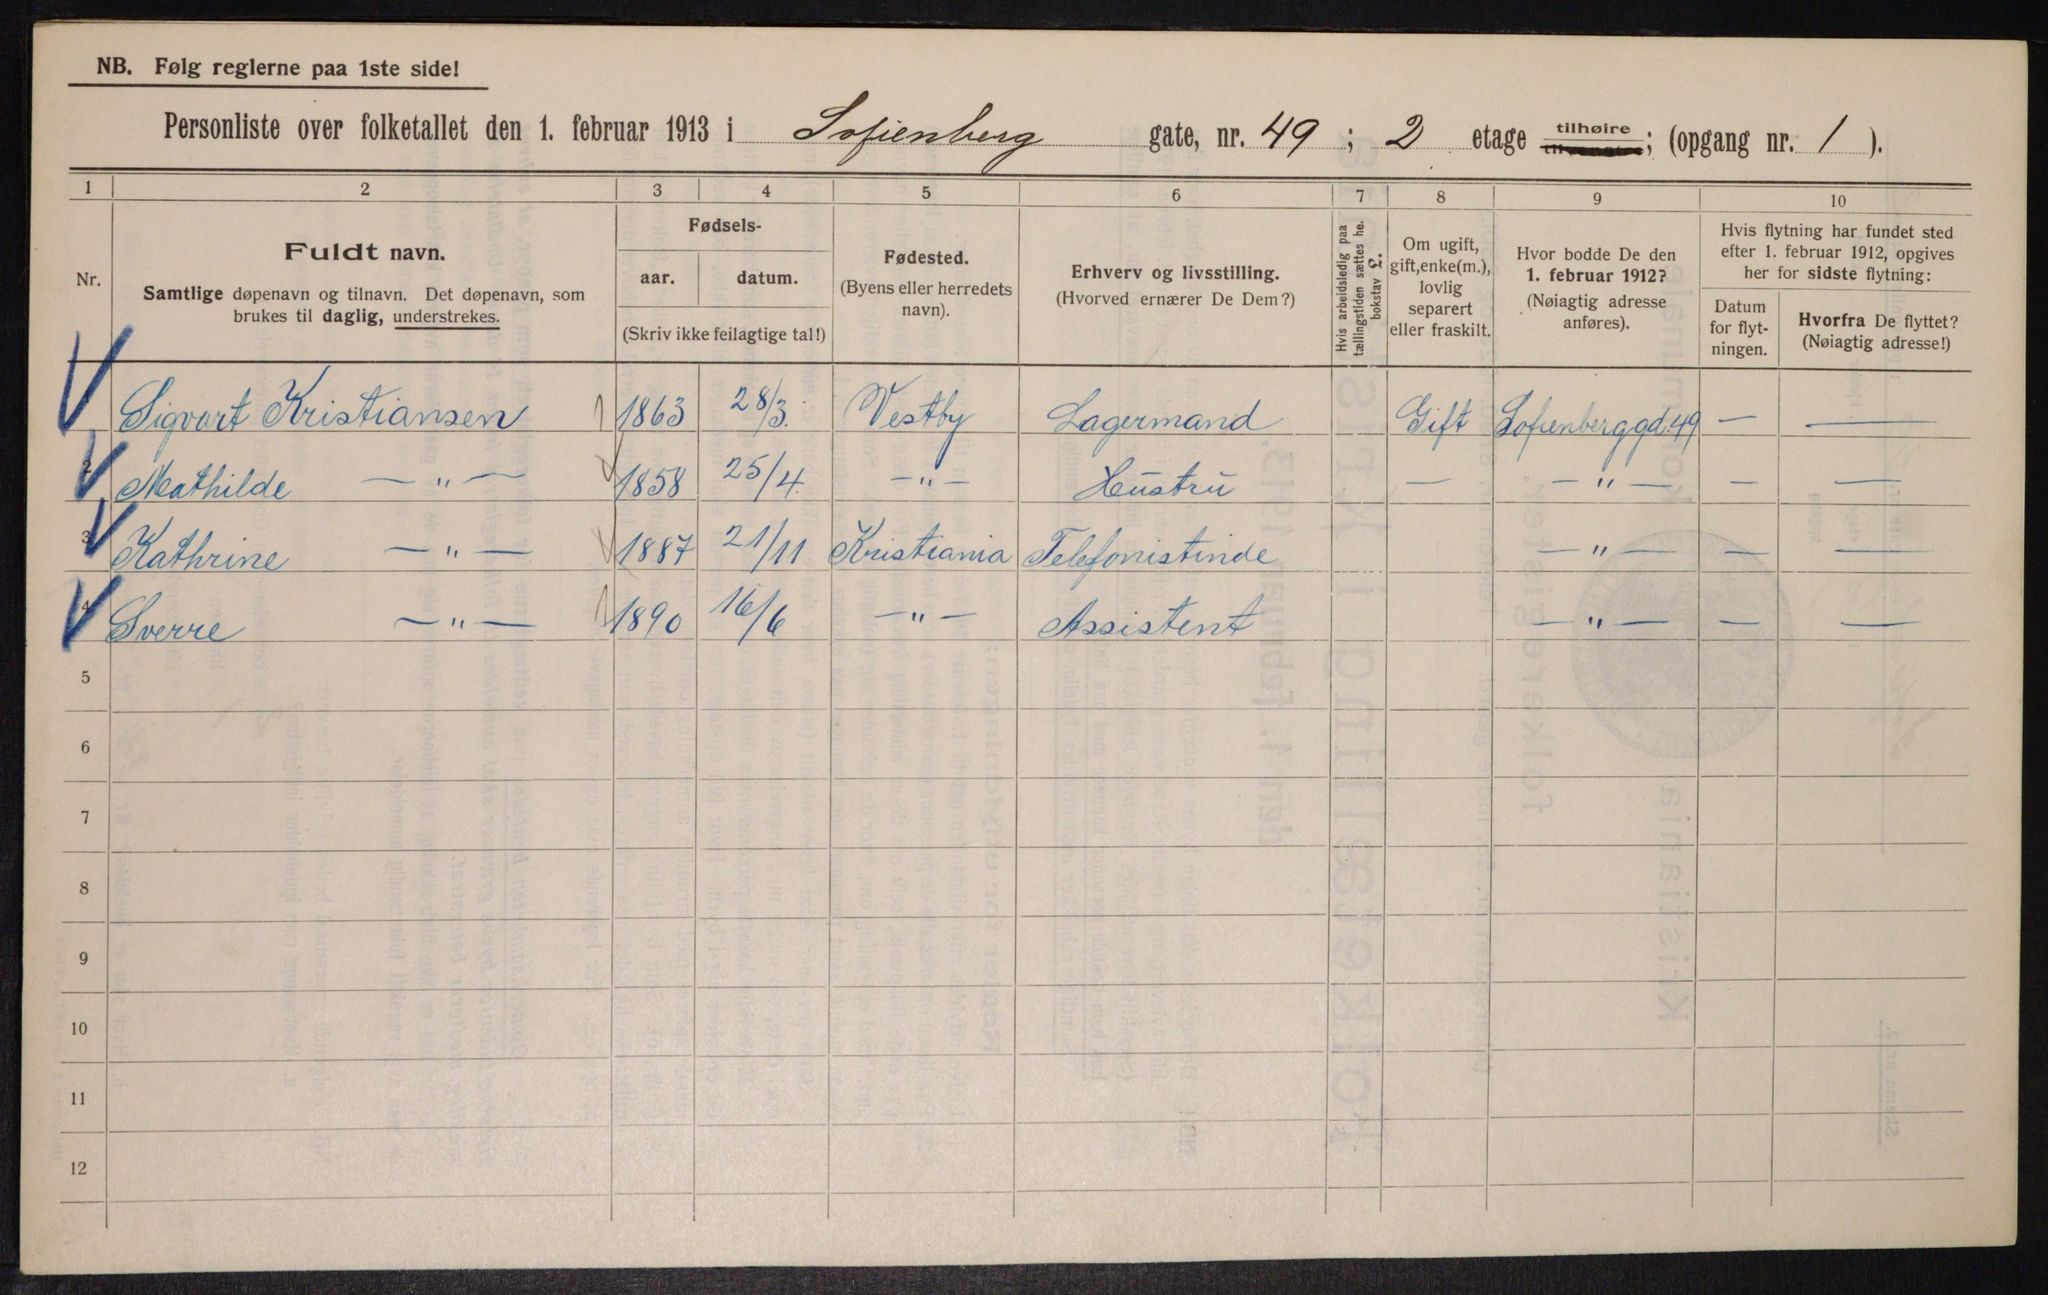 NB. Følg reglerne paa 1ste side!
Personliste over folketallet den 1. februar 1913 i Sofienberg gate, nr. 49 ; 2 etage tilhøire tilvenstre; (opgang nr. 1 ).
1 2 3 4 5 6 7 8 9 10
Nr.
Fuldt navn.
Samtlige døpenavn og tilnavn. Det døpenavn, som
brukes til daglig, understrekes.
Fødsels-
aar. datum.
(Skriv ikke feilagtige tal!)
Fødested.
(Byens eller herredets
navn).
Erhverv og livsstilling.
(Hvorved ernærer De Dem?)
Hvis arbeidsledig paa
tællingstiden sættes he.
bokstav L.
Om ugift,
gift, enke(m.),
lovlig
separert
eller fraskilt.
Hvor bodde De den
1. februar 1912?
(Nøiagtig adresse
anføres).
Hvis flytning har fundet sted
efter 1. februar 1912, opgives
her for sidste flytning:
Datum
for flyt-
ningen.
Hvorfra De flyttet?
(Nøiagtig adresse!)
1 Sigvart Kristiansen 1863 28/3. Vestby Lagermand Gift Sofienberggd. 49 — —
2 Mathilde — " — 1858 25/4. — " — Hustru — — " — — —
3 Kathrine — " — 1887 21/11 Kristiania Telefonistinde — " — — —
4 Sverre — " — 1890 16/6 — " — Assistent — " — — —
5
6
7
8
9
10
11
12